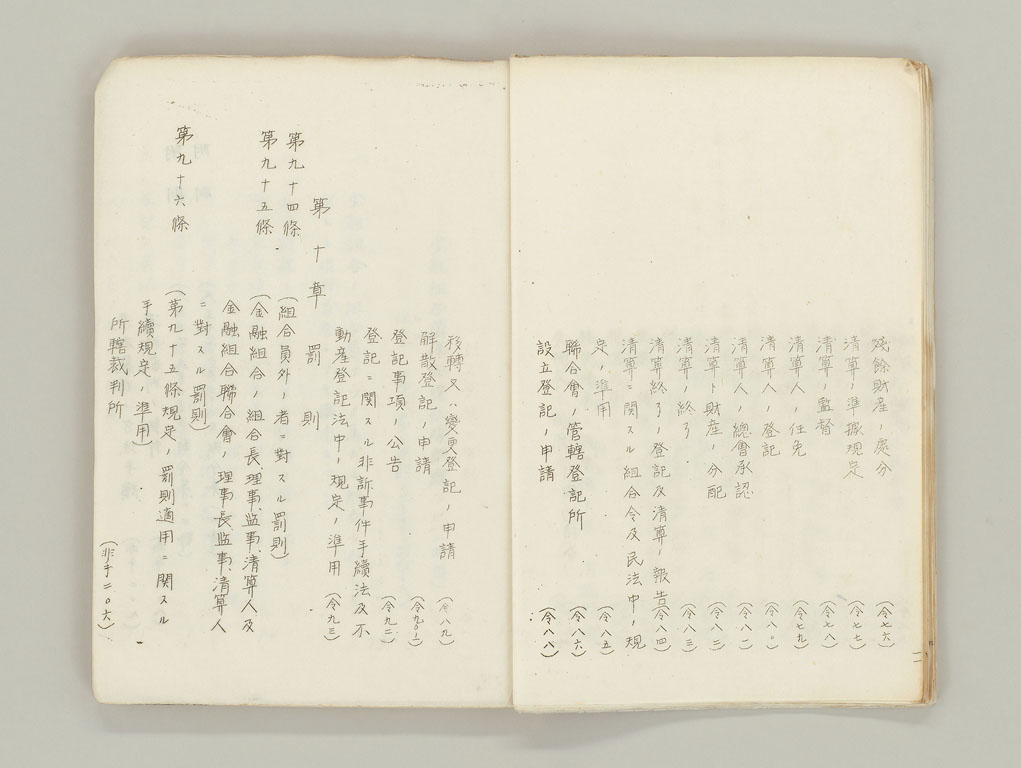 残餘財産ノ處分 (令七六)
清筭ノ準據規定 (令七七)
清筭ノ監督 (令七八)
清筭人ノ任免 (令七九)
清筭人ノ登記 (令八〇)
清筭人ノ總會承認 (令八一)
清筭ト財産ノ分配 (令八二)
清筭ノ終了 (令八三)
清筭終了ノ登記及清筭ノ報告 (令八四)
清筭ニ関スル組合令及民法中ノ規
定ノ準用 (令八五)
聯合會ノ管轄登記所 (令八六)
設立登記ノ申請 (令八八)
移轉又ハ變更登記ノ申請 (令八九)
解散登記ノ申請 (令九〇ノ一)
登記事項ノ公告 (令九二)
登記ニ関スル非訴事件手續法及不
動産登記法中ノ規定ノ準用 (令九三)
第十章 罰則
第九十四條 (組合員外ノ者ニ對スル罰則)
第九十五條 (金融組合ノ組合長、理事、監事、清算人及
金融組合聯合會ノ理事長監事、清算人
ニ對スル罰則)
第九十六條 (第九十五條規定ノ罰則適用ニ関スル
手續規定ノ準用)
所轄裁判所 (非手二〇六)